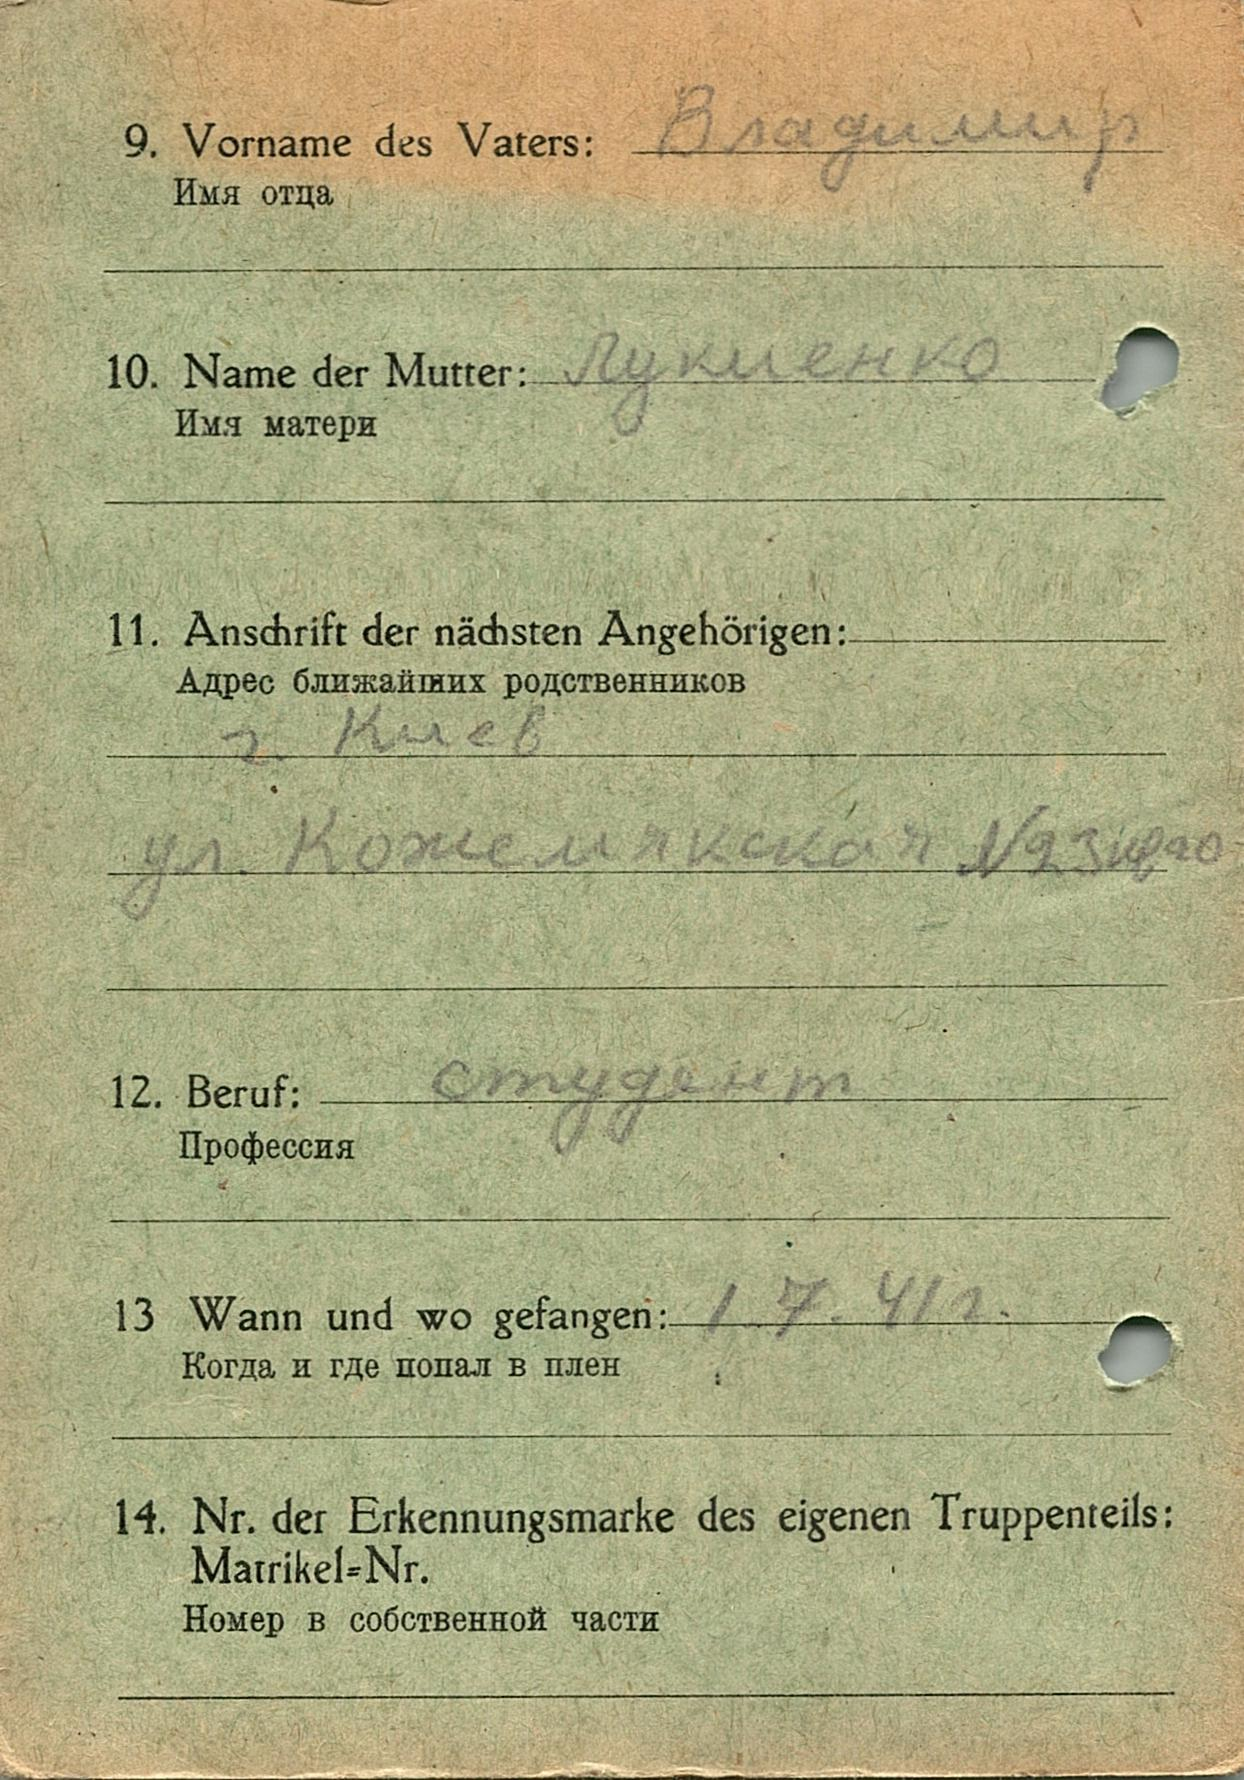 9. Vorname des Vaters: Владимир
Имя отца
10. Name der Mutter: Лукиенко
Имя матери
11. Anschrift der nächsten Angehörigen:
Адрес ближайших родственников
г. Киев
ул. Кожемякская №23
12. Beruf: студент
Профессия
13 Wann und wo gefangen: 1.7.41г.
Когда и где попал в плен
14. Nr. der Erkennungsmarke des eigenen Truppenteils:
Matrikel=Nr.
Номер в собственной части